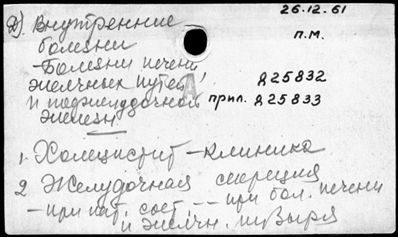 26.12.61
д). Внутренние
болезни
п.м.
- Болезни печени,
желчных путей
Д 25832
и поджелудочной
прил. Д 25833
железы
1. Холецистит - клиника
2 Желудочная секреция
- при пат. сост. - - при бол. печени
и желчн. пузыря